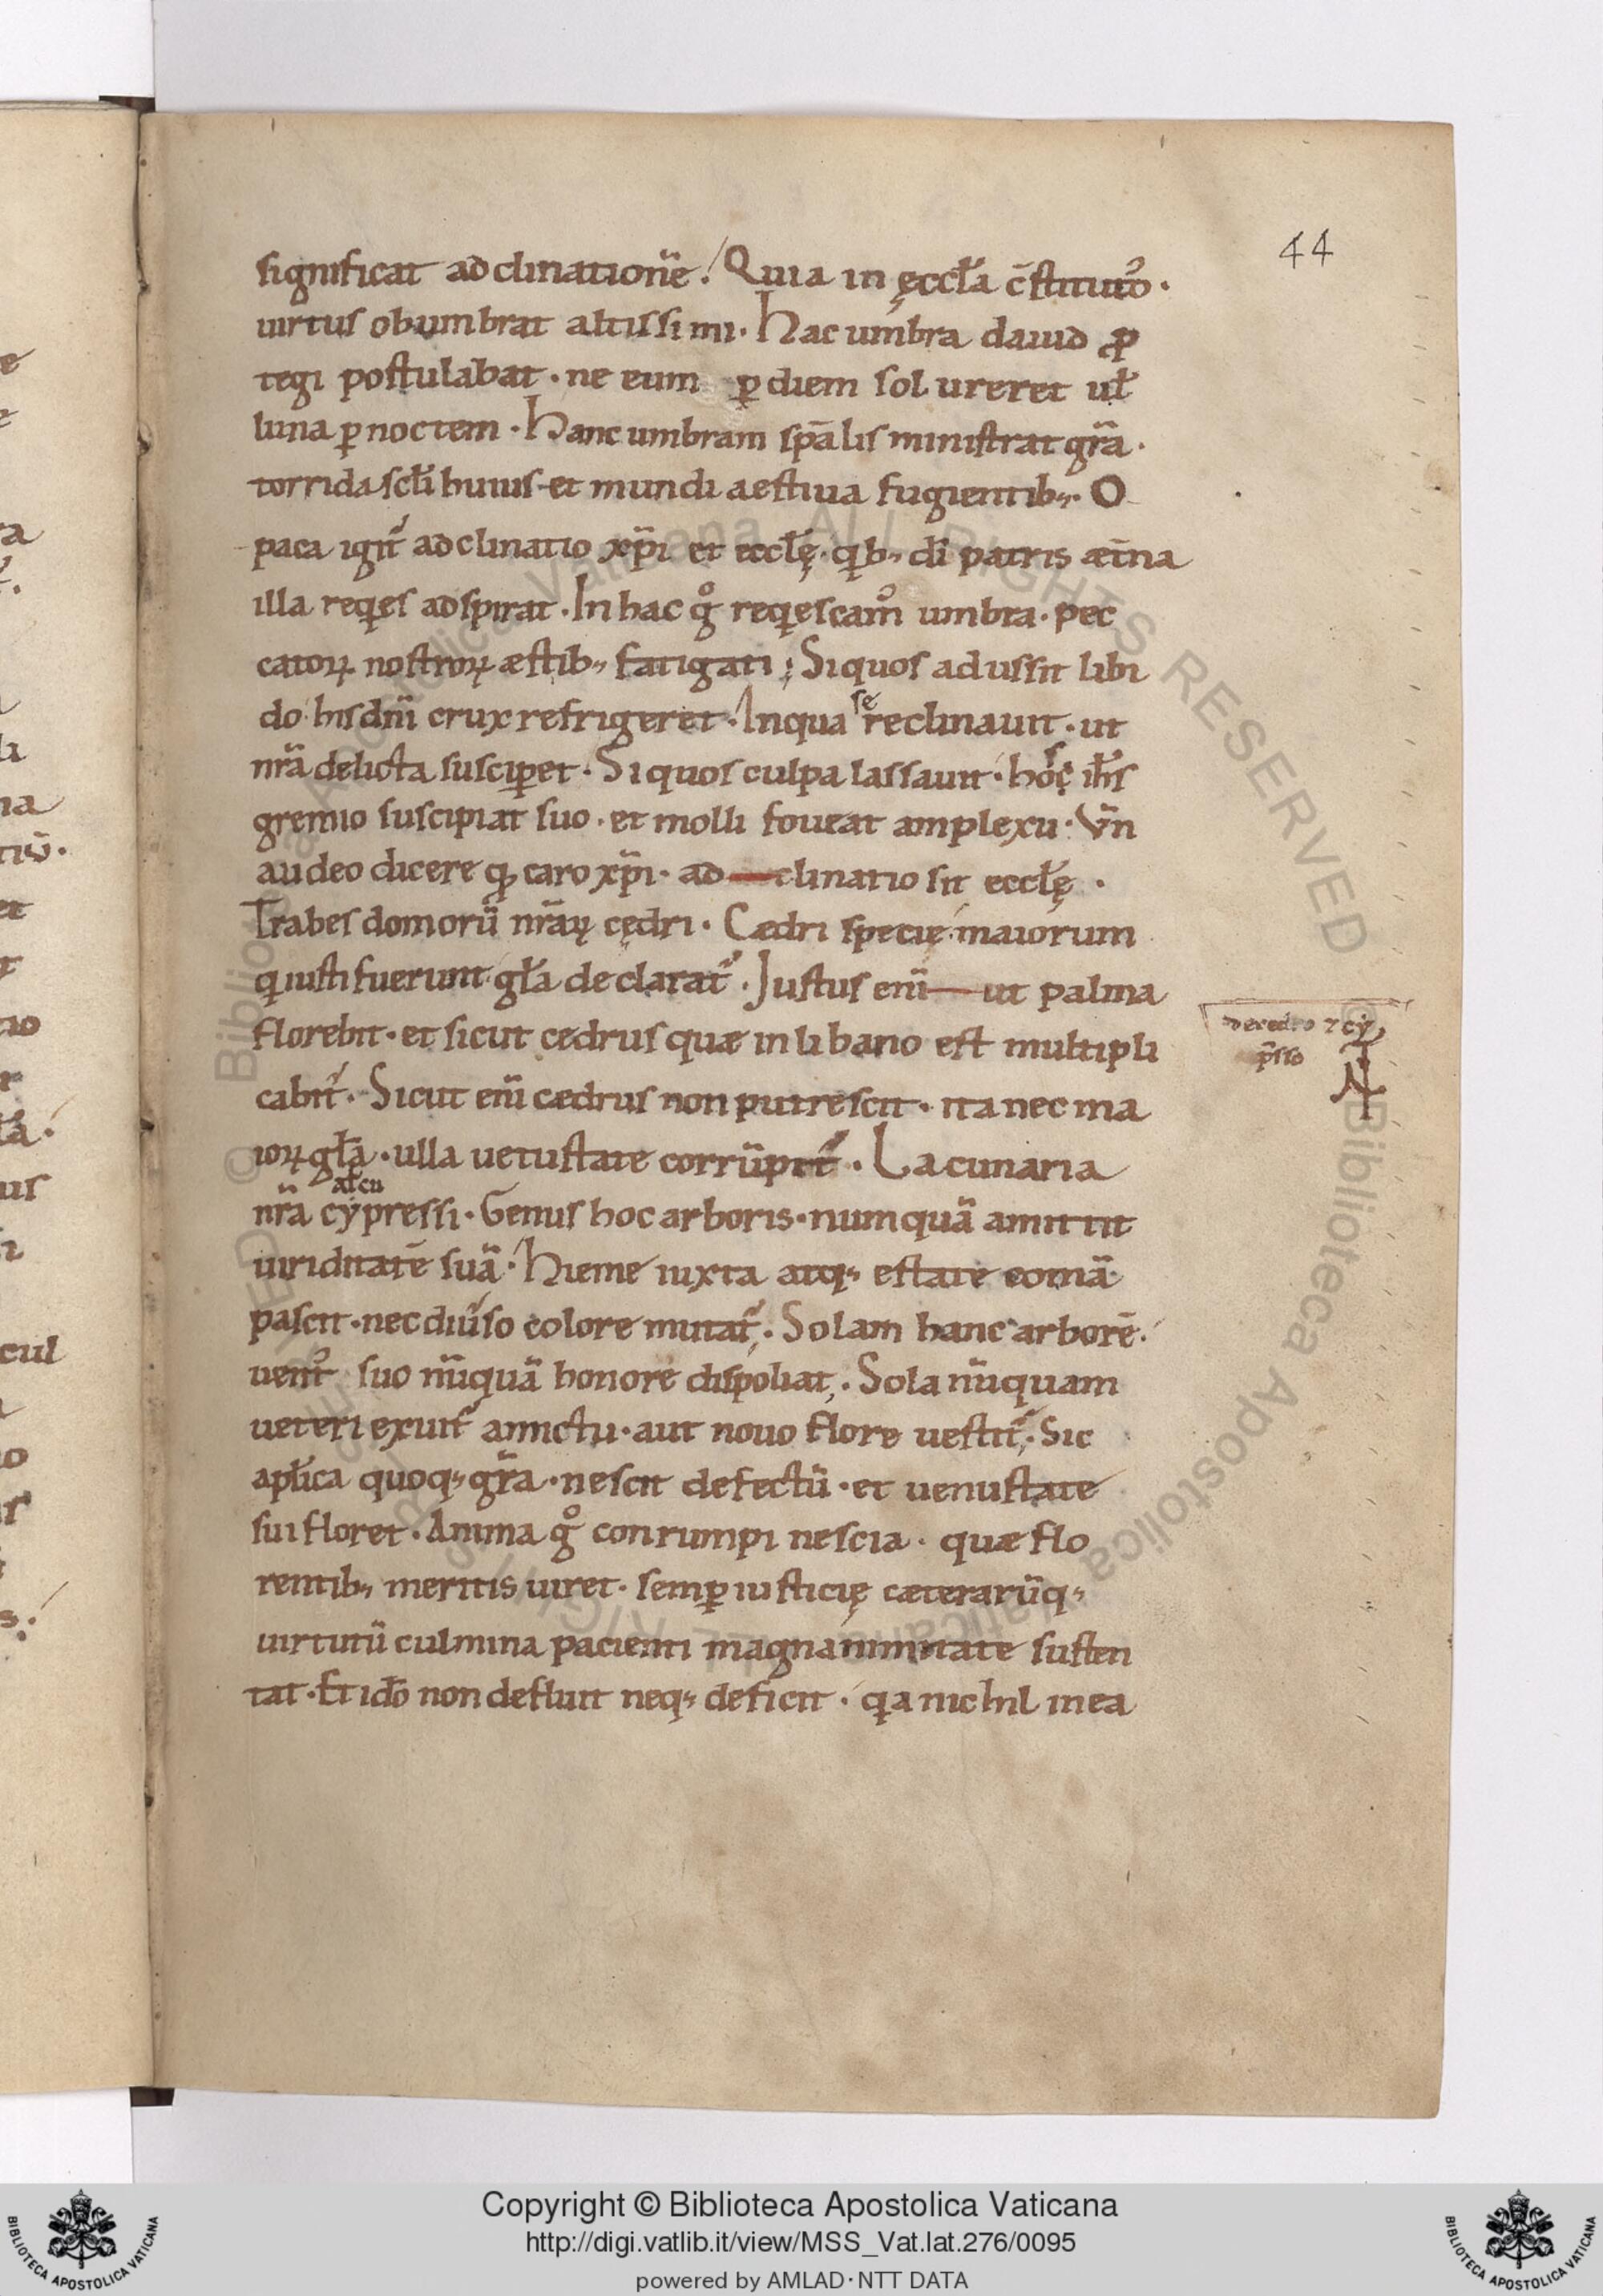 44
significat adclinationē. Quia in ęccła c̄stitutꝰ.
uirtus obumbrat altissimi. Hac umbra dauid ꝓ
tegi postulabat. ne eum ꝑ diem sol ureret uł
luna ꝑ noctem. Hanc umbram sp̄alis ministrat gr̄a.
torrida scłi huius et mundi aestiua fugientib;. O
paca igit᷑ adclinatio xp̄i et eccłę. qib; dī patris æt̄na
illa reqies adspirat. In hac gͦ reqiescamꝰ umbra. pec
catoꝝ nostroꝝ æstib; fatigati; Si quos adussit libi
do hisdn̄i crux refrigeret. In qua sę reclinauit. ut
nr̄a delicta susciꝑet. Si quos culpa lassauit. hos ih̄s
gremio suscipiat suo. et molli foueat amplexu. Vn̄
audeo dicere qđ caro xp̄i. ad clinatio sit eccłę.
Trabes domorū nr̄aꝝ cędri. Cædri specię maiorum
qi iusti fuerunt gła declarat᷑. Justus enī ut palma
florebit. et sicut cedrus quæ in libano est multipli
cabit᷑. Sicut enī cædrus non putrescit. ita nec ma
ioꝝ gła. ulla uetustate corrūpit᷑. Lacunaria
ał cu
nr̄a cypressi. Genus hoc arboris. numquā amittit
uiriditatē suā. Hieme iuxta atq; estate comā
pascit. nec diuͥso colore mutat᷑. Solam hanc arborē.
uentꝰ suo nūquā honore dispoliat. Sola nūquam
ueteri exuit᷑ amictu. aut nouo flore uestit᷑. Sic
apłica quoq; gr̄a. nescit defectū. et uenustate
sui floret. Anima gͦ conrumpi nescia. quæ flo
rentib; meritis uiret. semꝑ iusticię cæterarūq;
uirtutū culmina pacienti magnanimitate susten
tat. Et ido̅ non defluit neq; deficit. qia nichil in ea
de cedro ⁊ cy
p̄sso
Copyright © Biblioteca Apostolica Vaticana
http://digi.vatlib.it/view/MSS_Vat.lat.276/0095
powered by AMLAD·NTT DATA
BIBLIOTECA APOSTOLICA VATICANA
BIBLIOTECA APOSTOLICA VATICANA